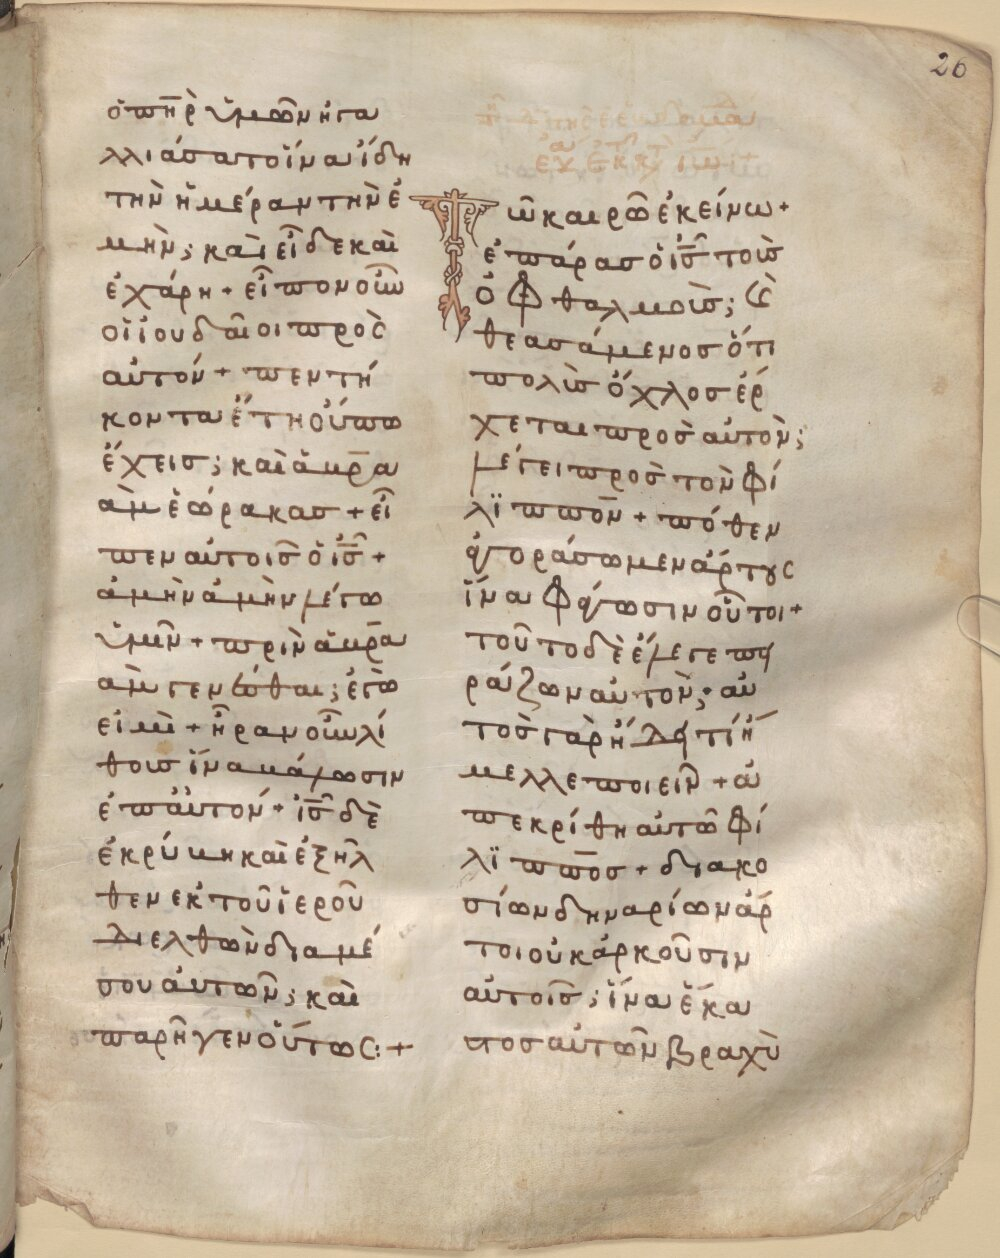 26
ὁ πη̅ρ ὑμῶν ἠγα
λλιάσατο ἵνα ἴδη
τὴν ἡμέραν τὴν ἐ
μὴν; καὶ εἶδε καὶ
ἐχάρη + εἶπον οὖν
οἱ ἰουδαῖοι πρὸς
αὐτόν + πεντή
κοντα ἔτη οὔπω
ἔχεις; καὶ ἀ̅βρα
ὰμ ἑώρακας + εἶ
πεν αὐτοῖς ὁ ι̅ς̅ +
ἀμὴν ἀμὴν λέγω
ὑμῖν + πρὶν ἀ̅βρα
ὰμ γενέσθαι; ἐγὼ
εἰμὶ + ἦραν οὖν λί
θους ἵνα βάλωσιν
ἐπ αὐτόν + ι̅ς̅ δὲ
ἐκρύβη καὶ ἐξῆλ
θεν ἐκ τοῦ ἱεροῦ
διελθὼν δια μέ
σου αὐτῶν; καὶ
παρῆγεν οὕτως:+
Τῶ καιρῶ ἐκείνω +
ἐπάρας ὁ ι̅ς̅ τοὺς
ὀφθαλμοὺς; καὶ
θεασάμενος ὅτι
πολὺς ὄχλος ἔρ
χεται πρὸς αὐτὸν;
λέγει πρὸς τὸν φί
λϊππον + πόθεν
ἀγοράσωμεν ἄρτους
ἵνα φάγωσιν οὗτοι +
τοῦτο δὲ ἔλεγε πει
ράζων αὐτὸν; αὐ
τὸς γὰρ ἤδει τί ἤ
μελλε ποιεῖν + ἀ
πεκρίθη αὐτῶ φί
λϊππος + διακο
σίων δηναρίων ἄρ
τοι οὐκ ἀρκοῦσιν
αὐτοῖς; ἵνα ἕκα
στος αὐτῶν βραχὺ